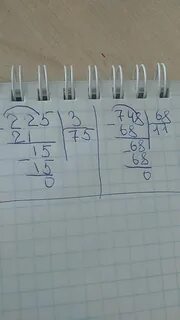 225 3
21 75
15
15
0
748 68
68 11
68
68
0